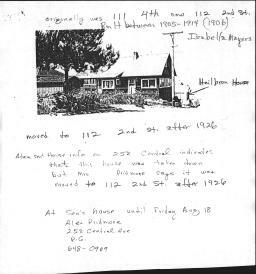 originally was 111 4th now 112 2nd St.
Built between 1905-1914 (1906)
Izabella Mayers
Heilbron House
moved to 112 2nd St. after 1926
Alex said House info on 252 Central indicates
that this house was taken down
but Mr. Pridmore says it was
moved to 112 2nd St. after 1926
At Son's house until Friday Aug 18
Alex Pridmore
252 Central Ave
P.G.
648-0969